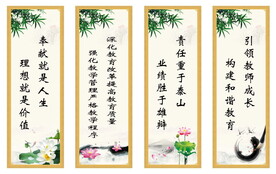 奉献就是人生
理想就是价值
深化教育改革提高教育质量
强化教学管理严格教学程序
责任重于泰山
业绩胜于雄辩
引领教师成长
构建和谐教育